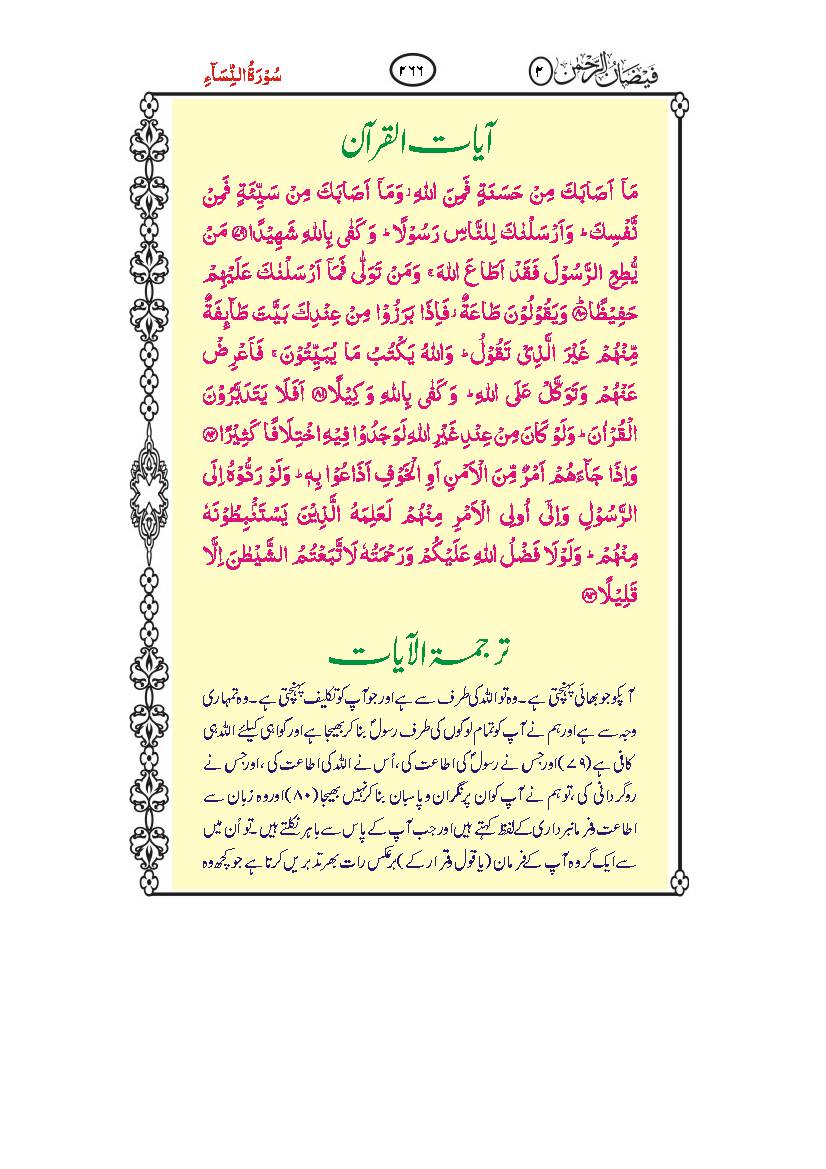 فیضان الرحمن ۲
۲۶۶
سُوْرَةُ النِّسَآءِ
آیات القرآن
مَاۤ اَصَابَكَ مِنْ حَسَنَةٍ فَمِنَ اللّٰهِ ز وَمَاۤ اَصَابَكَ مِنْ سَیِّئَةٍ فَمِنْ
نَّفْسِكَ ؕ وَاَرْسَلْنٰكَ لِلنَّاسِ رَسُوْلًا ؕ وَكَفٰى بِاللّٰهِ شَهِیْدًا ﴿۷۹﴾ مَنْ
یُّطِعِ الرَّسُوْلَ فَقَدْ اَطَاعَ اللّٰهَ ۚ وَمَنْ تَوَلّٰى فَمَاۤ اَرْسَلْنٰكَ عَلَیْهِمْ
حَفِیْظًا ﴿۸۰﴾ وَیَقُوْلُوْنَ طَاعَةٌ ز فَاِذَا بَرَزُوْا مِنْ عِنْدِكَ بَیَّتَ طَآىِٕفَةٌ
مِّنْهُمْ غَیْرَ الَّذِیْ تَقُوْلُ ؕ وَاللّٰهُ یَكْتُبُ مَا یُبَیِّتُوْنَ ۚ فَاَعْرِضْ
عَنْهُمْ وَتَوَكَّلْ عَلَى اللّٰهِ ؕ وَكَفٰى بِاللّٰهِ وَكِیْلًا ﴿۸۱﴾ اَفَلَا یَتَدَبَّرُوْنَ
الْقُرْاٰنَ ؕ وَلَوْ كَانَ مِنْ عِنْدِ غَیْرِ اللّٰهِ لَوَجَدُوْا فِیْهِ اخْتِلَافًا كَثِیْرًا ﴿۸۲﴾
وَاِذَا جَآءَهُمْ اَمْرٌ مِّنَ الْاَمْنِ اَوِ الْخَوْفِ اَذَاعُوْا بِهٖ ؕ وَلَوْ رَدُّوْهُ اِلَى
الرَّسُوْلِ وَاِلٰۤى اُولِی الْاَمْرِ مِنْهُمْ لَعَلِمَهُ الَّذِیْنَ یَسْتَنْۢبِطُوْنَهٗ
مِنْهُمْ ؕ وَلَوْلَا فَضْلُ اللّٰهِ عَلَیْكُمْ وَرَحْمَتُهٗ لَاتَّبَعْتُمُ الشَّیْطٰنَ اِلَّا
قَلِیْلًا ﴿۸۳﴾
ترجمۃ الآیات
آپکو جو بھائی پہنچتی ہے۔ وہ تو اللہ کی طرف سے ہے اور جو آپ کو تکلیف پہنچتی ہے۔ وہ تمہاری
وجہ سے ہے اور ہم نے آپ کو تمام لوگوں کی طرف رسولؐ بنا کر بھیجا ہے اور گواہی کیلئے اللہ ہی
کافی ہے (۷۹) اور جس نے رسولؐ کی اطاعت کی، اُس نے اللہ کی اطاعت کی، اور جس نے
روگردانی کی، تو ہم نے آپ کو ان پر نگران و پاسبان بنا کر نہیں بھیجا (۸۰) اور وہ زبان سے
اطاعت و فرمانبرداری کے لفظ کہتے ہیں اور جب آپ کے پاس سے باہر نکلتے ہیں۔ تو اُن میں
سے ایک گروہ آپ کے فرمان (یا قول و قرار کے) برعکس رات بھر تدبیریں کرتا ہے جو کچھ وہ